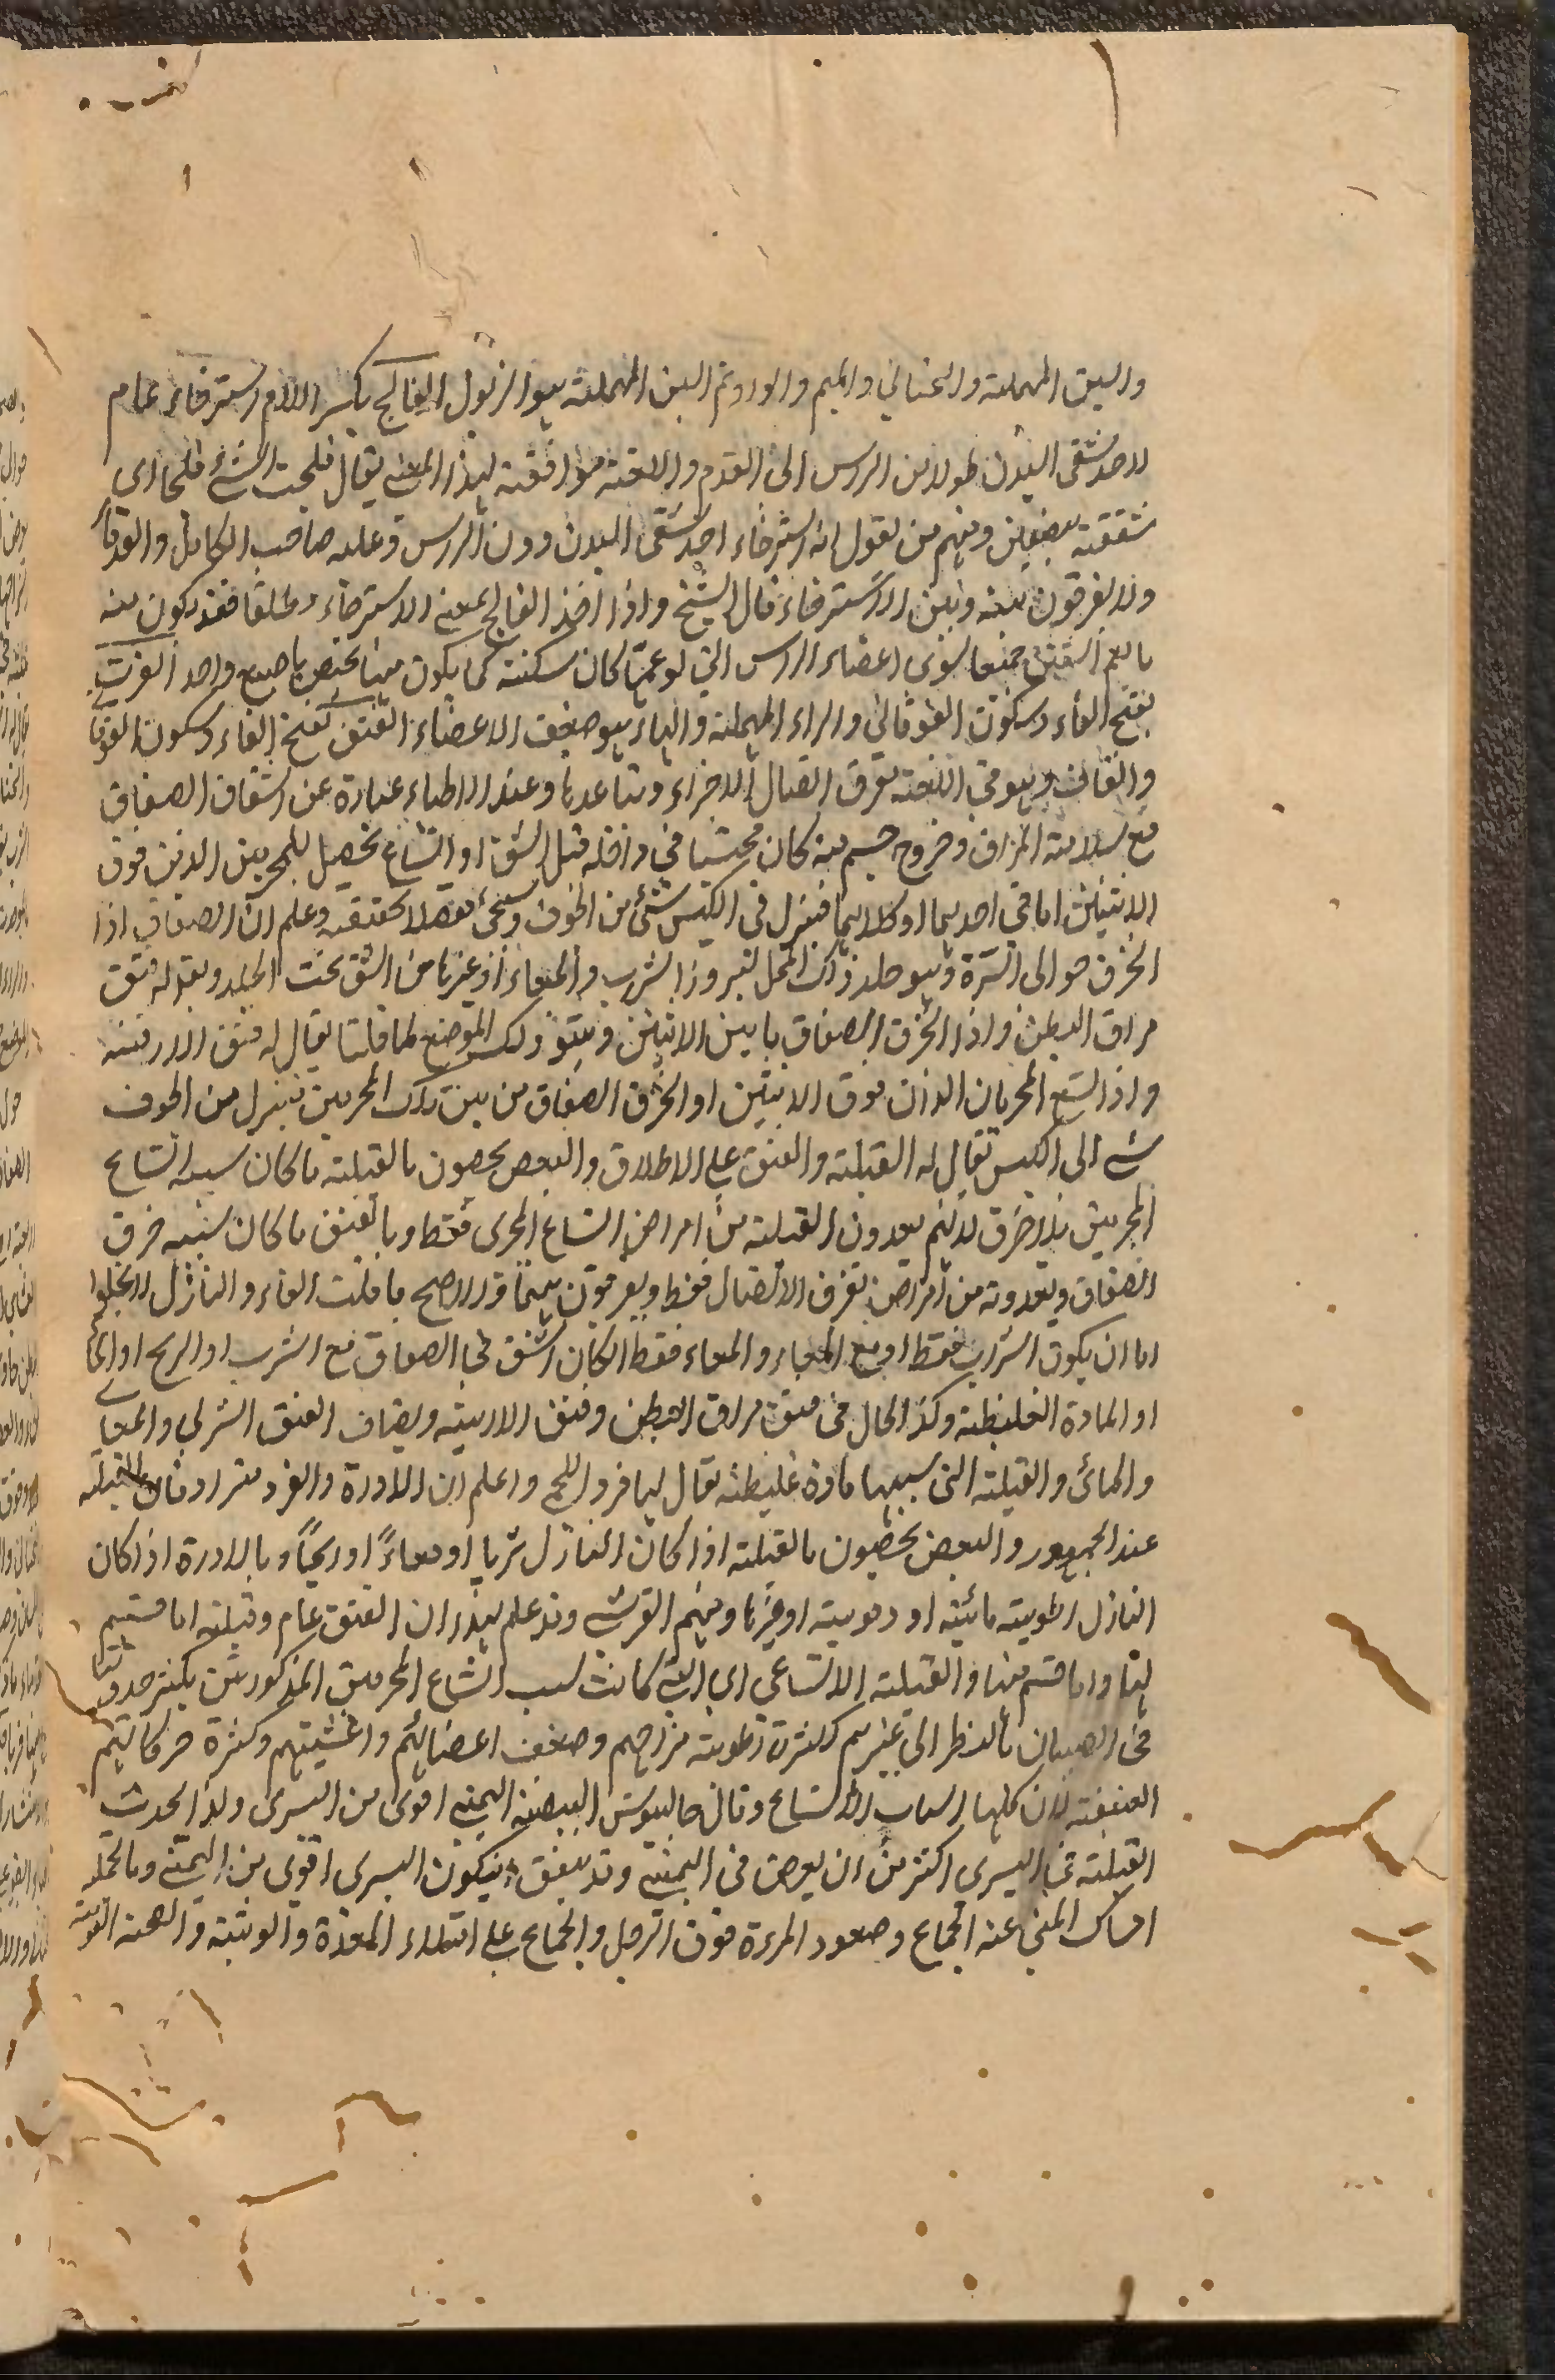 والسين المهملة والتحتاني والميم والواو ثم السين المهملة هو الزبول الفالج بكسر اللام استرخاء عام
لاحد شقى البدن طولا من الراس الى القدم واللغة موافقة لهذا المعنى يقال فلجت الشئ فلجا اى
شققته نصفين ومنهم من يقول انه استرخاء احد شقى البدن دون الراس وعليه صاحب الكامل والقدماء
ولا يفرقون بينه وبين الاسترخاء قال الشيخ واذا اخذ الفالج بمعنى الاسترخاء مطلقا فقد يكون منه
ما يعم الشقين جميعا سوى اعضاء الراس التى لو عمها كان سكتة كما يكون منها يختص باصبع واحد الفترت
بفتح الفاء وسكون الفوقاني والراء المهملة والتاء هو ضعف الاعضاء الفتق بفتح الفاء وسكون الفوقا
والقاف وهو فى اللغة تفرق اتصال الاجزاء وتباعدها وعند الاطباء عبارة عن انشقاق الصفاق
مع سلامة المراق وخروج جسم منه كان محتبسا فى داخله قبل الشق او اتساع يحصل للمجريين الذين فوق
الانثيين اما فى احديهما او كلاهما فنزل فى الكيس شئ من الجوف وسيجئ مفصلا تحقيقه وعلم ان الصفاق اذا
انخرق حوالى السرة ويبرز جلد ذلك المحل لبروز الثرب والمعاء او غيرها من الشق تحت الجلد ويقال له فتق
مراق البطن واذا انخرق الصفاق ما بين الانثيين ونتو ذلك الموضع لما قلنا يقال له فتق الاربية
واذا اتسع المجريان الذان فوق الانثيين او انخرق الصفاق من بين ذلك المجريين فينزل من الجوف
شئ الى الكيس يقال له القيلة والفتق على الاطلاق والبعض يخصون بالقيلة ما كان سببه اتساع
المجريين بلا خرق لانهم يعدون القيلة من امراض اتساع المجرى فقط وبالفتق ما كان سببه خرق
الصفاق ويعدونه من امراض تفرق الاتصال فقط ويفرقون بينهما والاصح ما قلت الفاء والنازل لا يخلوا
اما ان يكون الثرب فقط او مع المعاء والمعاء فقط ان كان انشق فى الصفاق مع الثرب او الريح او الماء
او المادة الغليظة وكذا الحال فى فتق مراق البطن وفتق الاربية ويضاف الفتق الثربى والمعاى
والمائى والقيلة التى سببها مادة غليظة يقال لها قرو اللحم واعلم ان الادرة والقرو مترادفان للقيلة
عند الجمهور والبعض يخصون بالقيلة اذا كان النازل ثربا او معاءً او ريحاً وبالادرة اذا كان
النازل رطوبة مائية او دموية او غيرها ومنهم القرشى وقد علم بهذا ان الفتق عام وقيلة اما قسيم
لها واما قسم منها والقيلة الاتساعى اى التى كانت بسبب اتساع المجريين المذكورين يكثر حدوثها
فى الصبيان بالنظر الى غيرهم لكثرة رطوبة مزاجهم وضعف اعضائهم واغشيتهم وكثرة حركاتهم
العنيفة لان كلها اسباب الاتساع وقال جالينوس البيضة اليمنى اقوى من اليسرى ولذا يحدث
القيلة فى اليسرى اكثر من ان يعرض فى اليمنى وقد يتفق ان يكون اليسرى اقوى من اليمنى وبالجملة
امساك المنى عند الجماع وصعود المرءة فوق الرجل والجماع على امتلاء المعدة والوثبة والصيحة القوية